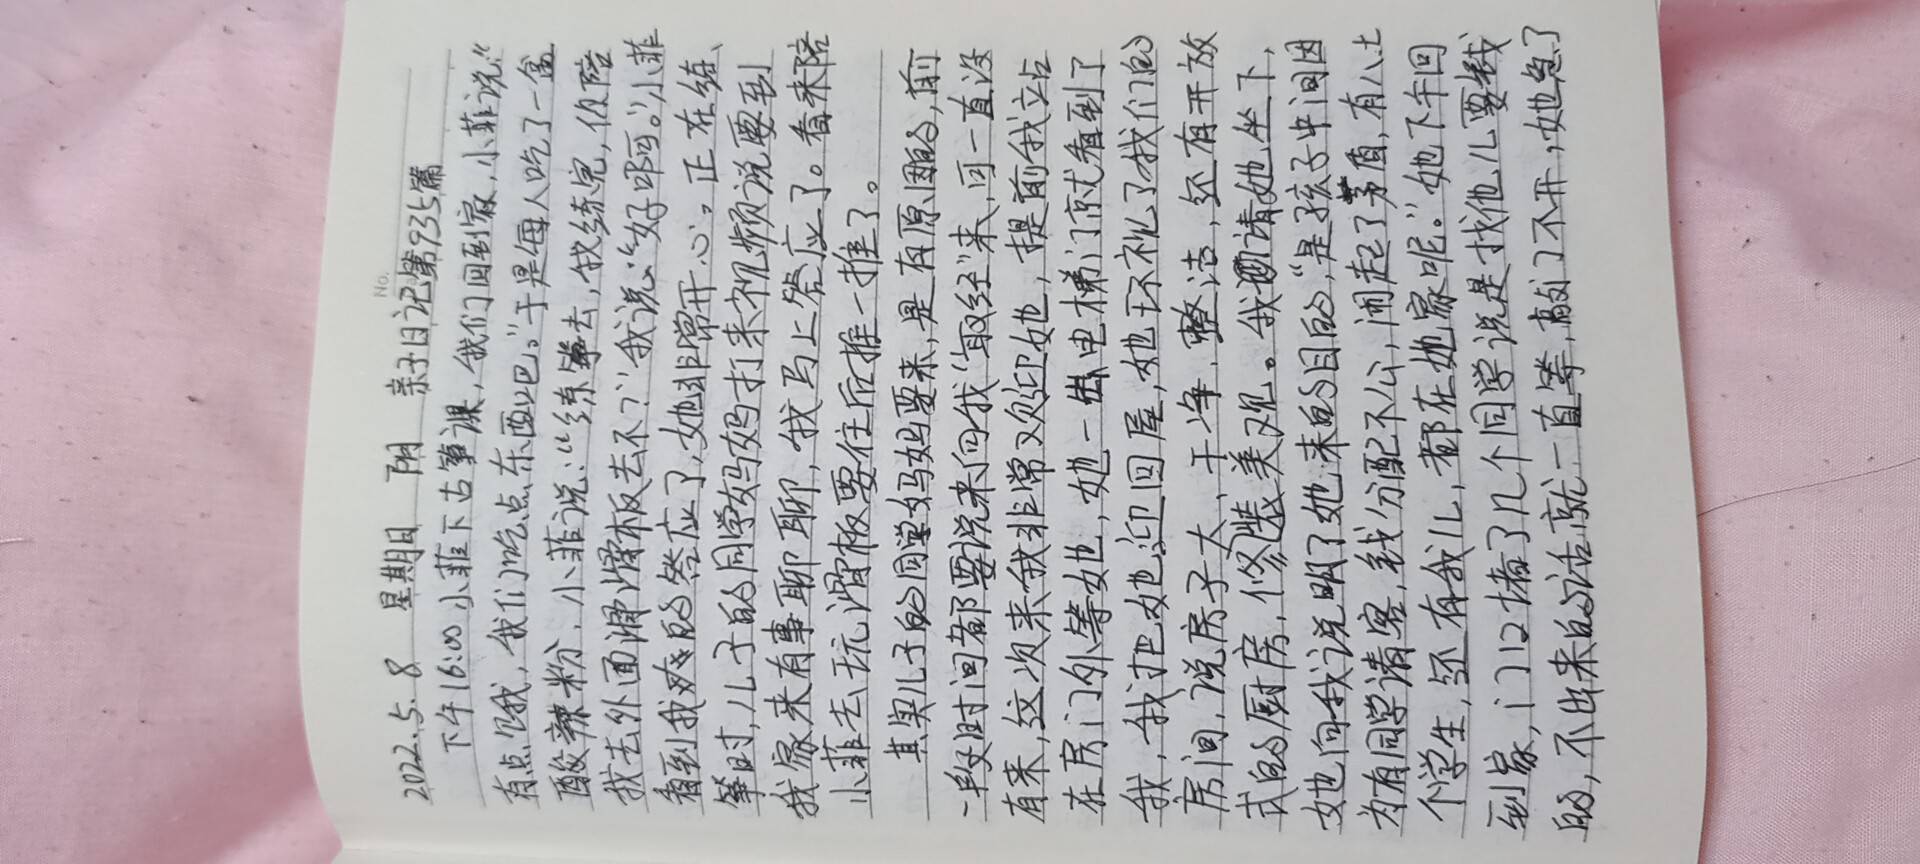 No.
2022.5.8 星期日 阴 亲子日记第935篇
下午16:00小菲下古筝课,我们回到家,小菲说:“
有点饿,我们吃点东西吧。”于是每人吃了一盒
酸辣粉,小菲说:“练筝去,我练完,你陪
我去外面滑滑板去不?”我说:“好啊。”小菲
看到我爽快的答应了,她非常开心。正在练
筝时,儿子的同学妈妈打来视频说要到
我家来有事聊聊,我马上答应了。看来陪
小菲去玩滑板要往后推一推了。
其奥儿子的同学妈妈要来,是有原因的,前
一段时间都要说来向我“取经”来,可一直没
有来,这次来我非常欢迎她,提前我站
在房门外等她,她一出电梯门京尤看到了
我,我把她迎回屋,她环视了我们的
房间,说房子大,干净,整洁,还有开放
式的厨房,修装美观。我请她坐下,
她向我说明了她来的目的,“是孩子中间因
为有同学请客,钱分配不公,闹起了茅盾,有八九
个学生,还有我儿,都在她家呢。”她下午回
到家,门口堵了几个同学说是找他儿要钱
的,不出来的话就一直等,敲门不开,她急了